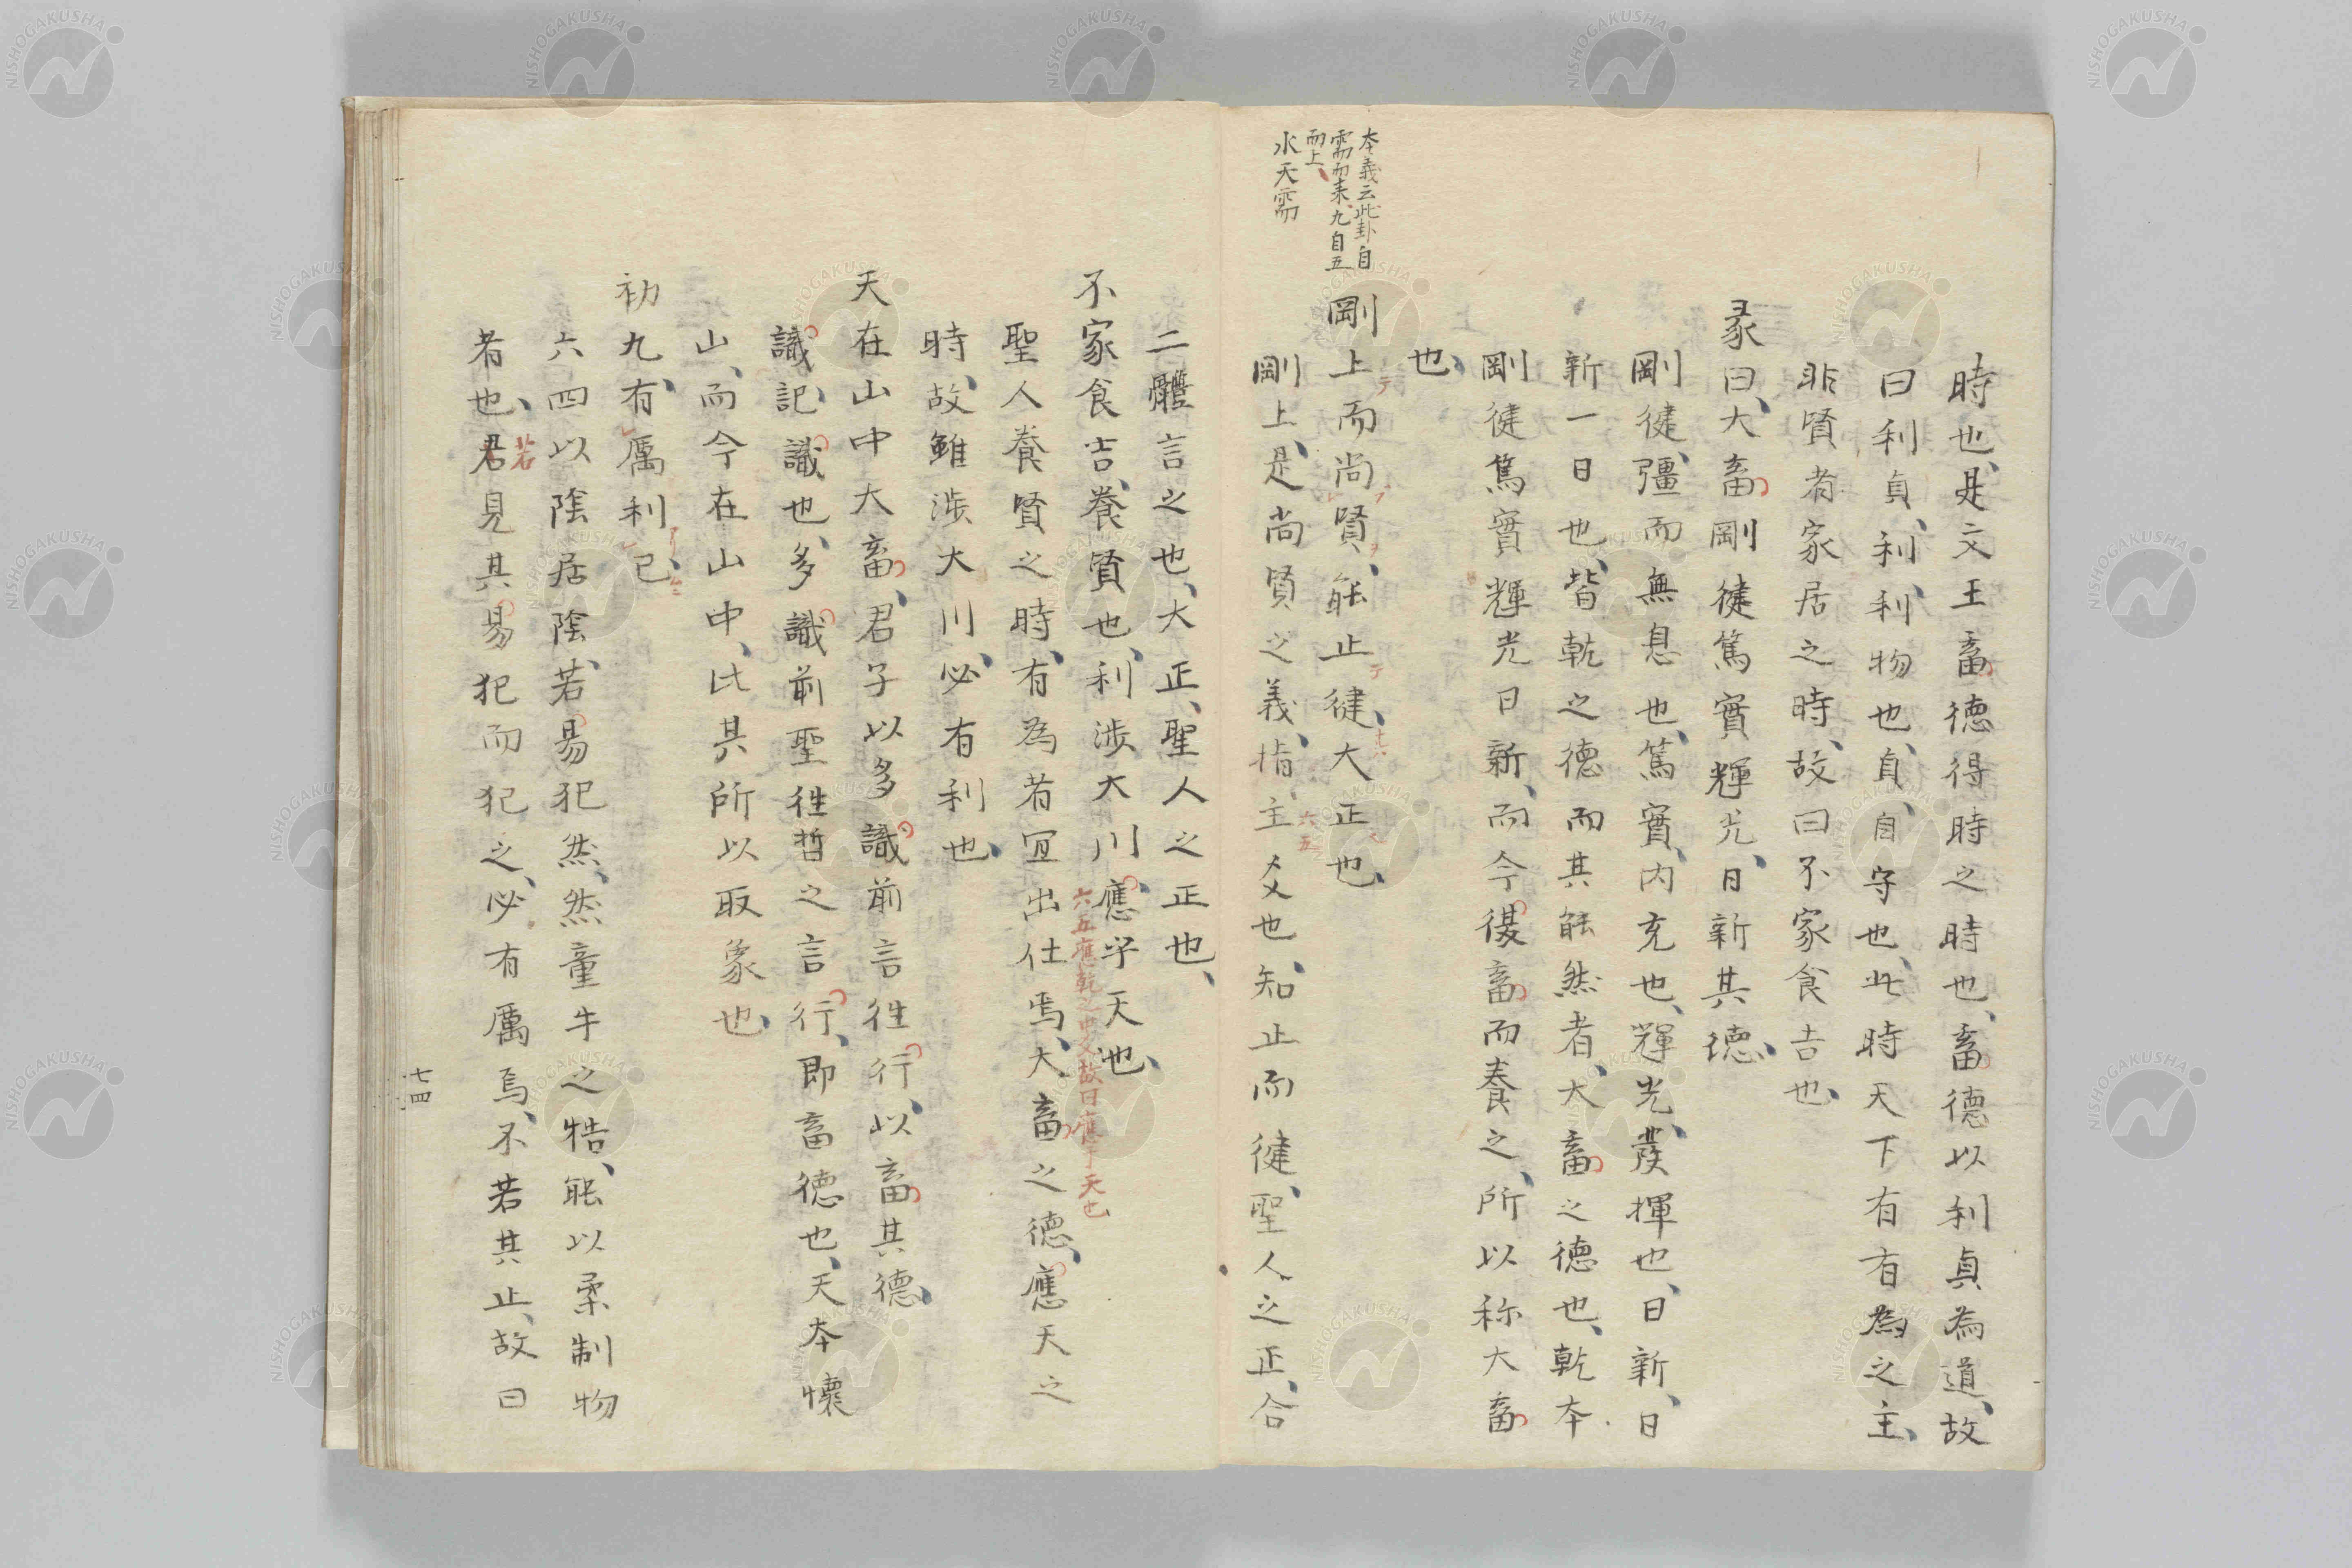 時也、是文王畜德得時之時也、畜德以利貞為道、故
曰利貞、利、利物也、貞、自守也、此時天下有有為之主、
非賢者家居之時、故曰不家食吉也、
彖曰、大畜剛健篤實輝光、日新其德、
剛健、彊而無息也、篤實、内充也、輝光、發揮也、日新、日
新一日也、皆乾之德而其能然者、大畜之德也、乾本
剛健篤實輝光日新、而今復畜而養之、所以称大畜
也、
本義云此卦自
需而来九自五
而上、
水天需
剛上而尚賢、能止健、大正也、
剛上、是尚賢之義、指主爻也、知止而健、聖人之正、合
六五
二體言之也、大正、聖人之正也、
不家食吉、養賢也、利涉大川、應乎天也、
六五應乾之中爻故曰應乎天也
聖人養賢之時、有為者宜出仕焉、大畜之德、應天之
時、故雖涉大川、必有利也、
天在山中大畜、君子以多識前言往行、以畜其德、
識、記、識也、多識前聖往哲之言行、即畜德也、天本懷
山、而今在山中、比其所以取象也、
初九、有厲利已、
六四以陰居陰、若易犯然、然童牛之牿、能以柔制物
者也、君見其易犯而犯之、必有厲焉、不若其止、故曰
若
七四